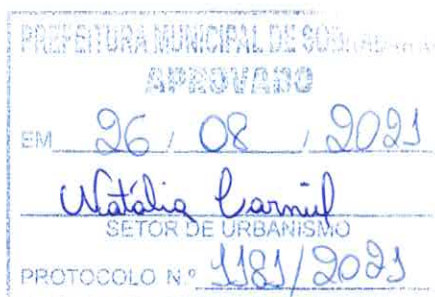 PREFEITURA MUNICIPAL DE
APROVADO
EM 26 / 08 / 2021
Natália
SETOR DE URBANISMO
PROTOCOLO N.º 1181/2021